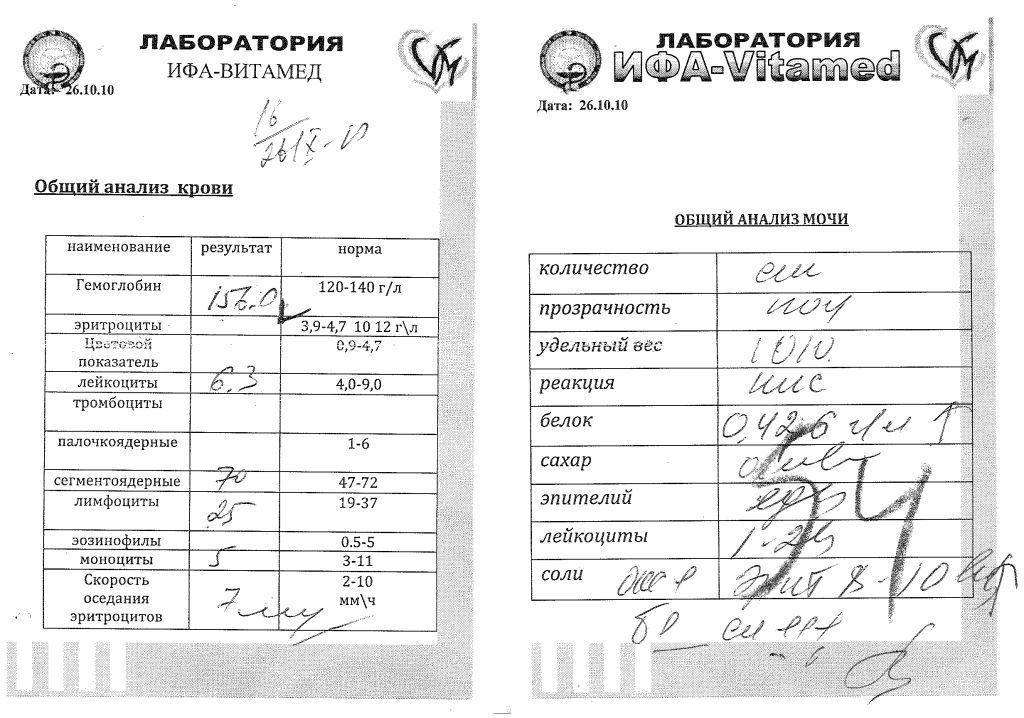 ЛАБОРАТОРИЯ
ИФА-ВИТАМЕД
Дата: 26.10.10
16
26/X-10
Общий анализ крови
наименование результат норма
Гемоглобин 156.0 120-140 г/л
эритроциты 3,9-4,7 10 12 г\л
Цветовой показатель 0,9-4,7
лейкоциты 6.3 4,0-9,0
тромбоциты
палочкоядерные 1-6
сегментоядерные 70 47-72
лимфоциты 25 19-37
эозинофилы 0.5-5
моноциты 5 3-11
Скорость 2-10
оседания 7 мм\ч
эритроцитов
ЛАБОРАТОРИЯ
ИФА-Vitamed
Дата: 26.10.10
ОБЩИЙ АНАЛИЗ МОЧИ
количество
прозрачность
удельный вес 1010
реакция кис
белок 0,426 г/л ↑
сахар
эпителий
лейкоциты 1-2
соли эрит 8-10
54